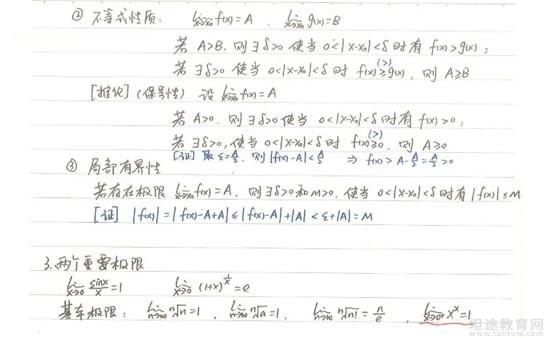 ② 不等式性质: lim_{x→x₀} f(x)=A . lim_{x→x₀} g(x)=B
若 A>B. 则∃δ>0 使当 0<|x-x₀|<δ时有 f(x)>g(x);
若∃δ>0 使当 0<|x-x₀|<δ时 f(x)≥(>)g(x), 则 A≥B
[推论](保号性) 设 lim_{x→x₀} f(x)=A
若 A>0. 则∃δ>0 使当 0<|x-x₀|<δ时有 f(x)>0;
若∃δ>0, 使当 0<|x-x₀|<δ时 f(x)≥(>)0, 则 A≥0
[证] 取 ε=A/2. 则 |f(x)-A|<A/2 ⇒ f(x)>A-A/2=A/2>0
③ 局部有界性
若存在极限 lim_{x→x₀} f(x)=A, 则∃δ>0和M>0, 使当 0<|x-x₀|<δ时有 |f(x)|≤M
[证] |f(x)|=|f(x)-A+A|≤|f(x)-A|+|A|<ε+|A|=M
3.两个重要极限
lim_{x→0} sinx/x=1 lim_{x→0} (1+x)^{1/x}=e
基本极限: lim_{n→∞} ⁿ√n=1, lim_{n→∞} ⁿ√a=1, lim_{n→∞} ⁿ√n!=n/e , lim_{x→0⁺} xˣ=1
坦途教育网
www.tantuw.com